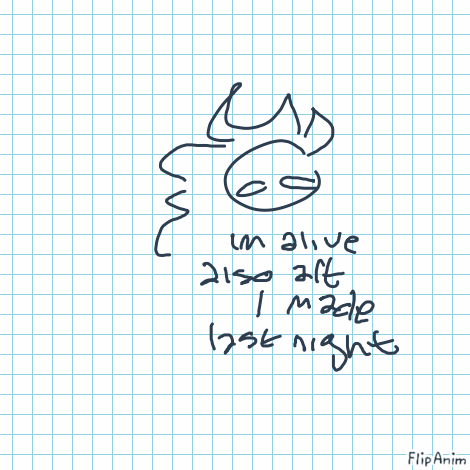 im alive
also alt
I made
last night
FlipAnim